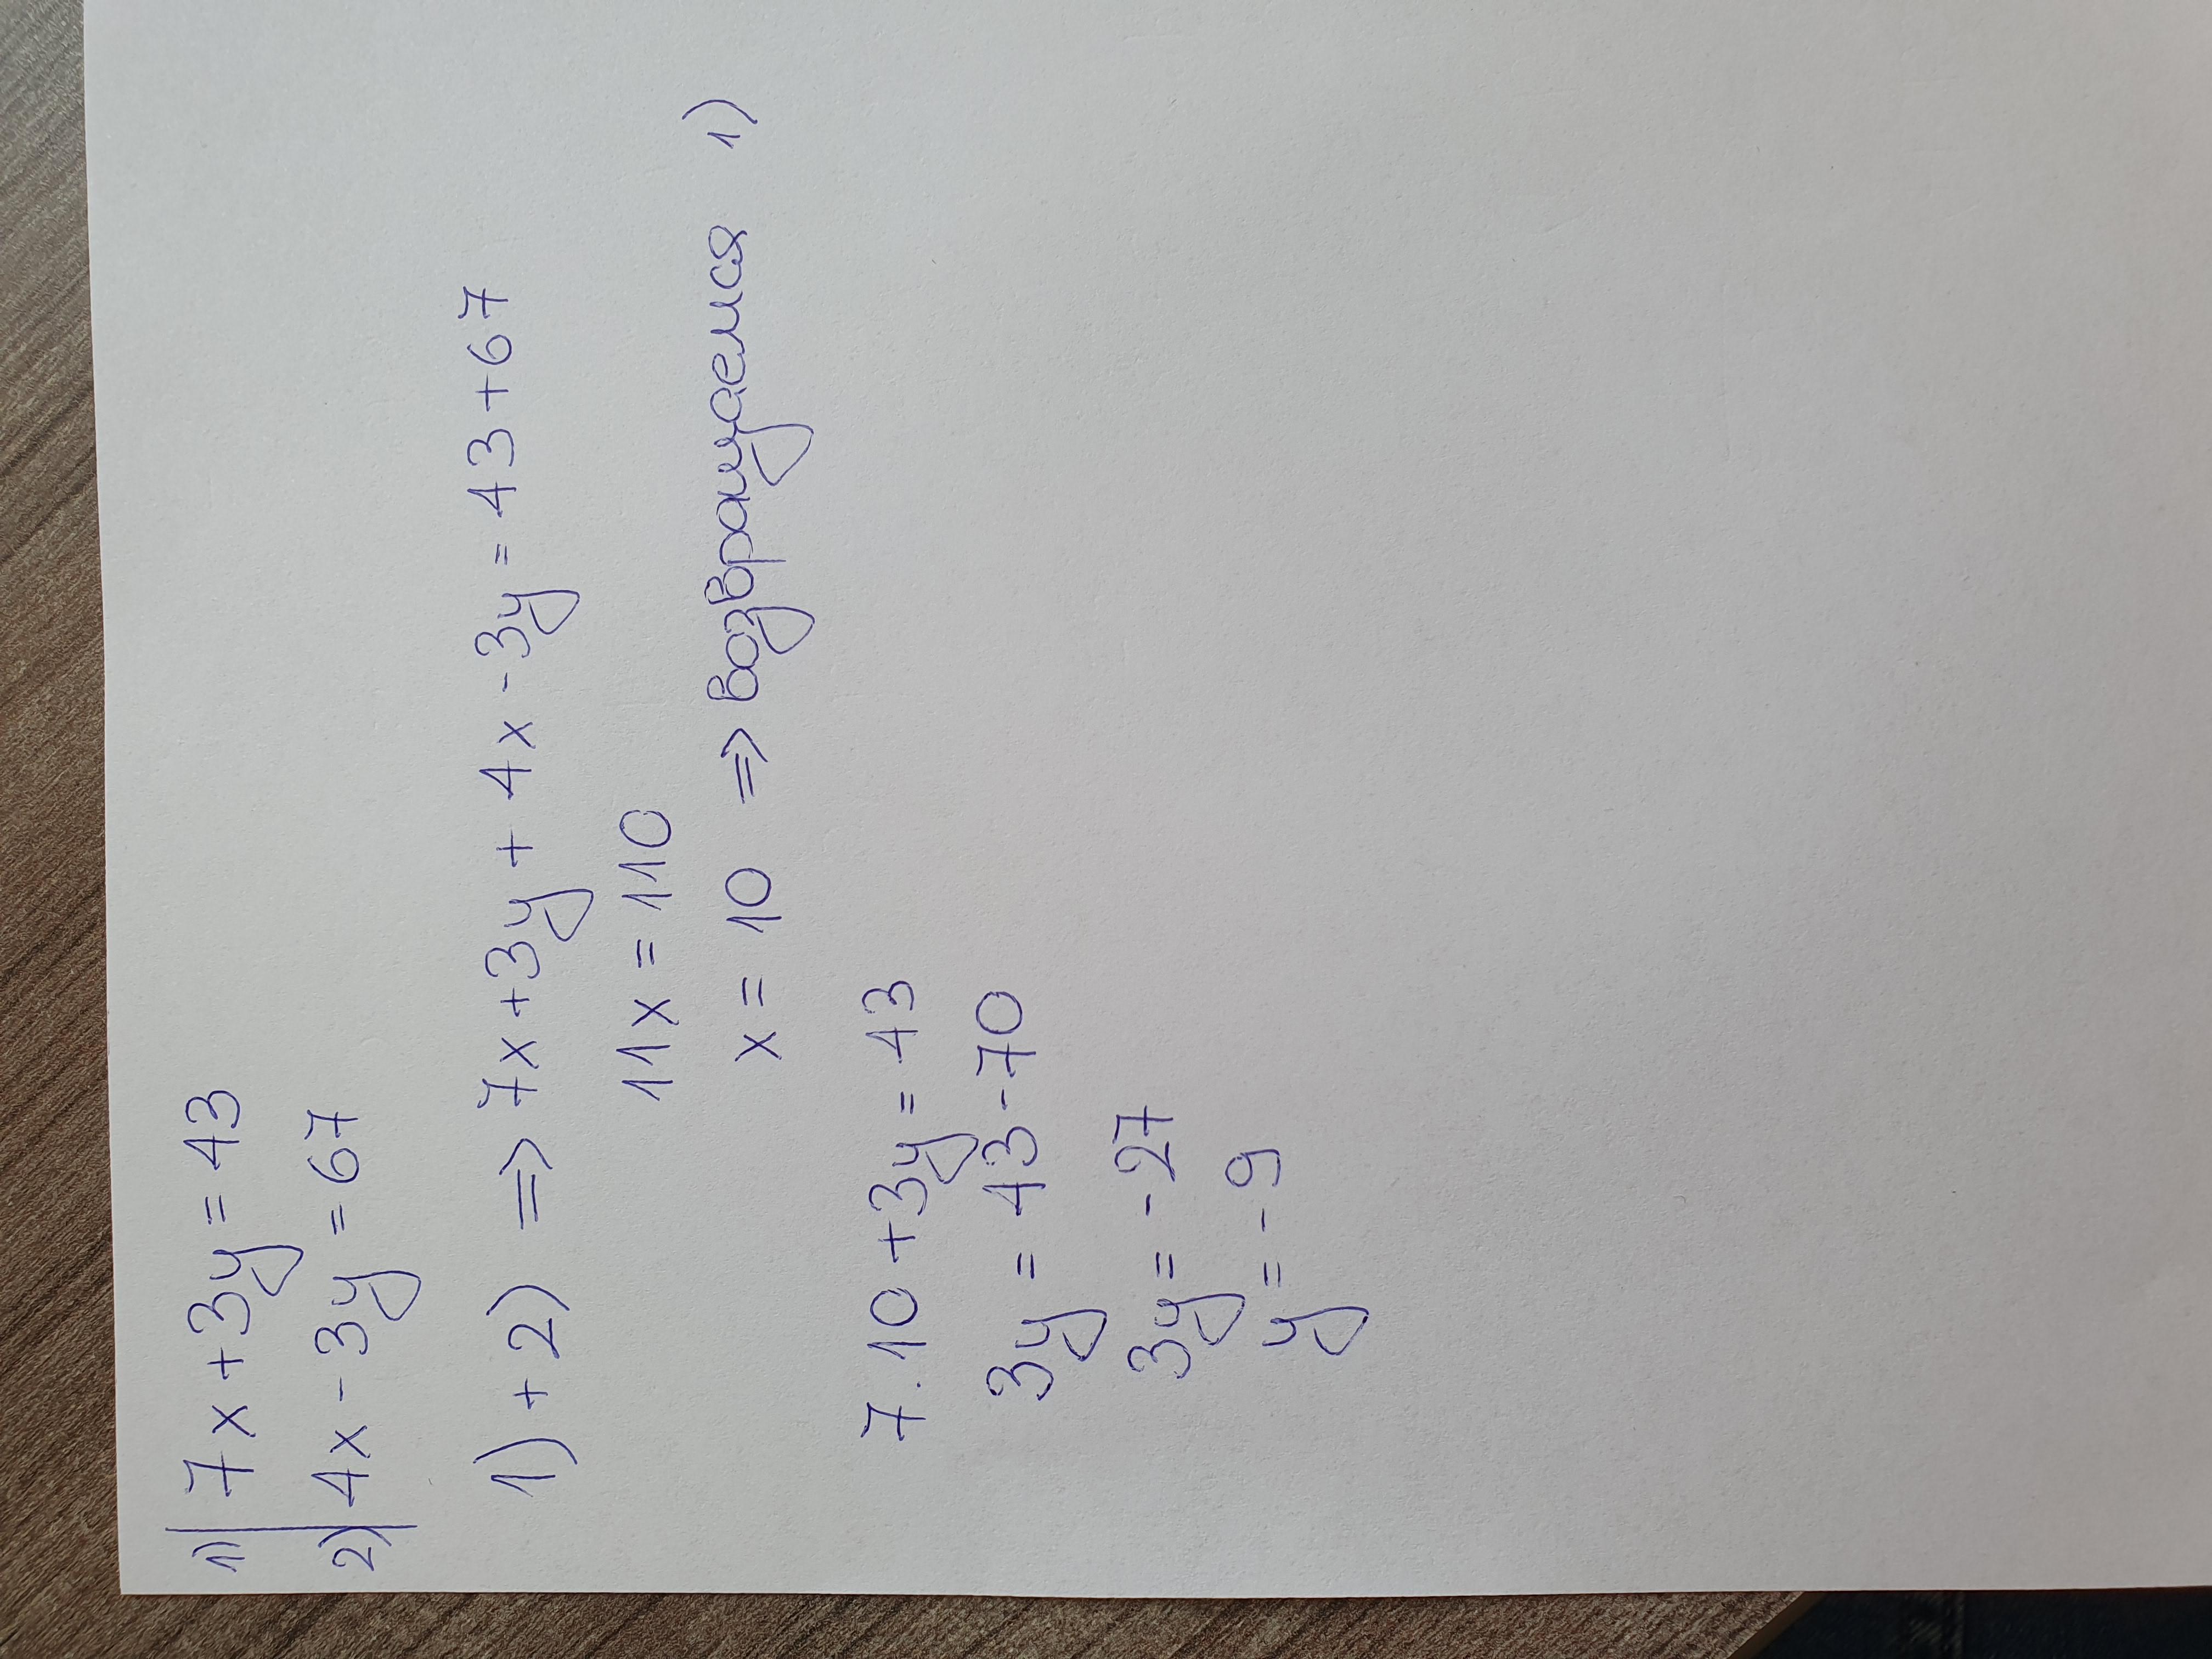 1) 7x+3y=43
2) 4x-3y=67
1)+2) => 7x+3y+4x-3y=43+67
11x=110
x=10 => возвращаемся 1)
7.10+3y=43
3y=43-70
3y=-27
y=-9